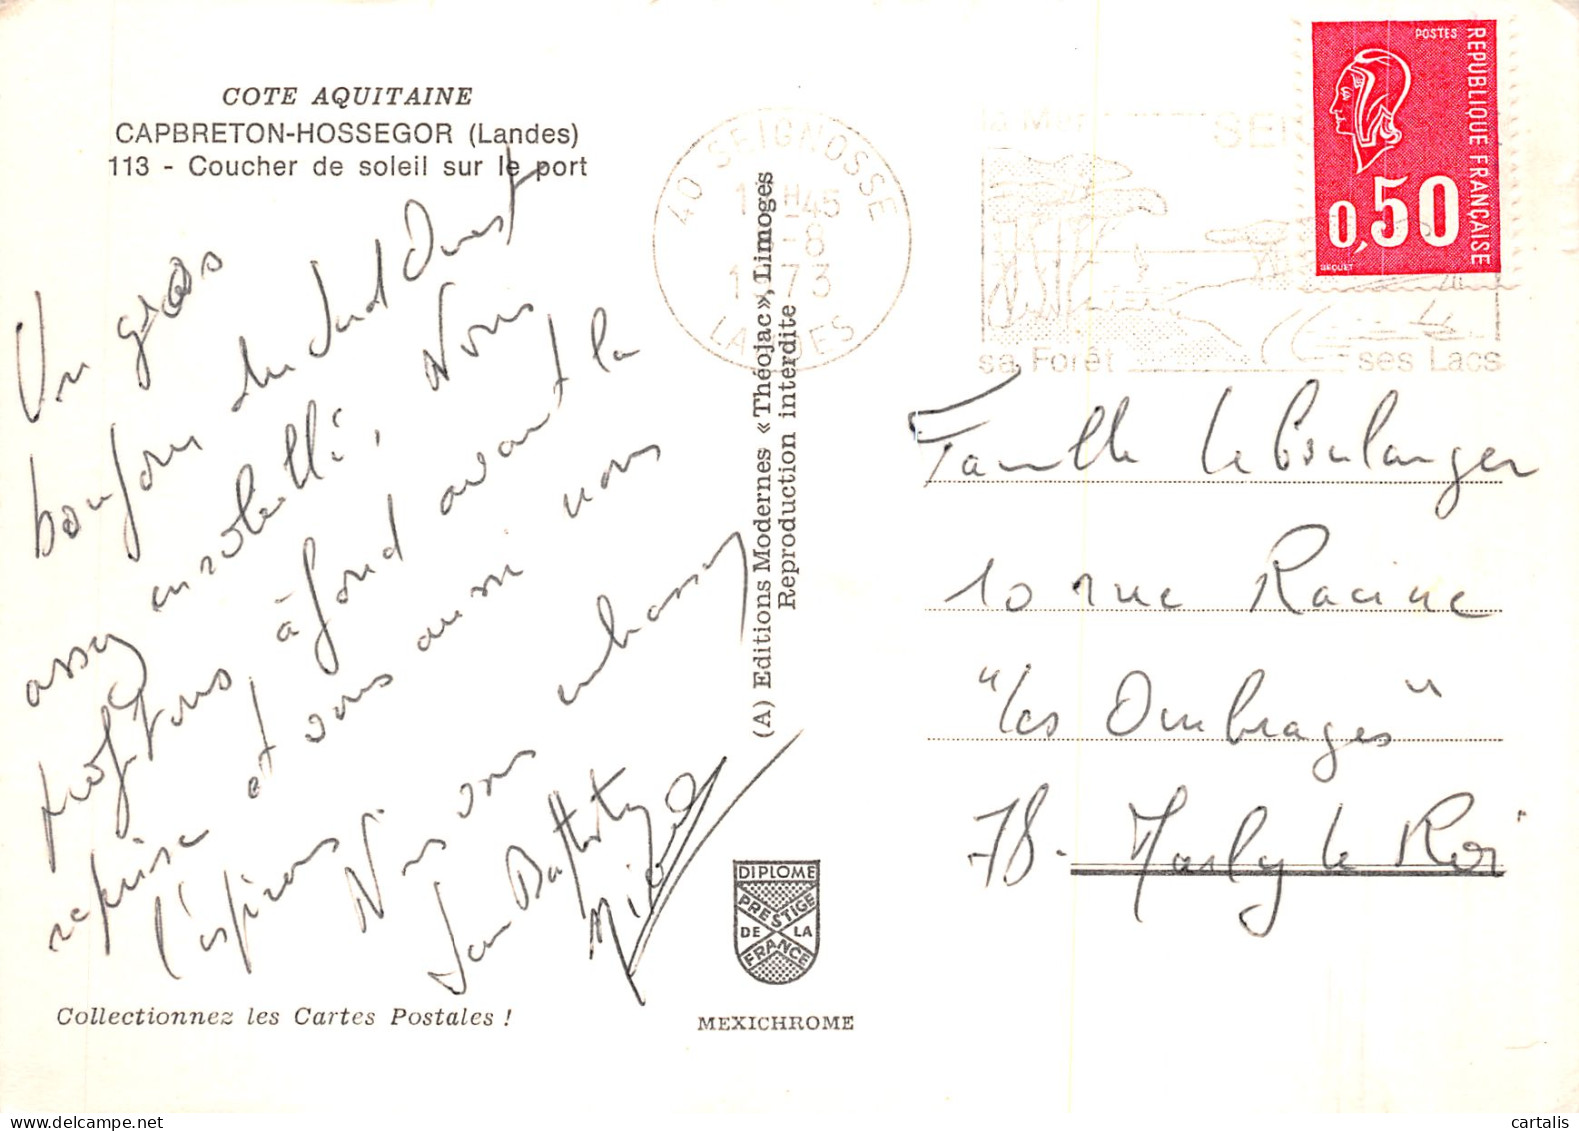 COTE AQUITAINE
CAPBRETON-HOSSEGOR (Landes)
113 - Coucher de soleil sur le port
Un gros
bonjour du Sud Ouest
assez ensoleillé, Nous
profitons, à fond avant la
reprise et vous aussi nous
l'espérons Nous vous embrassons
Jean Baptiste
Collectionnez les Cartes Postales !
(A) Editions Modernes « Théojac », Limoges
Reproduction interdite
DIPLOME
PRESTIGE
DE LA
FRANCE
MEXICHROME
40 SEIGNOSSE
H 45
-8
1973
LANDES
la Mer
sa Forêt
ses Lacs
POSTES
REPUBLIQUE FRANÇAISE
0,50
BEQUET
Famille Le Boulanger
10 rue Racine
"Les Ombrages"
78- Marly le Roi
cartalis